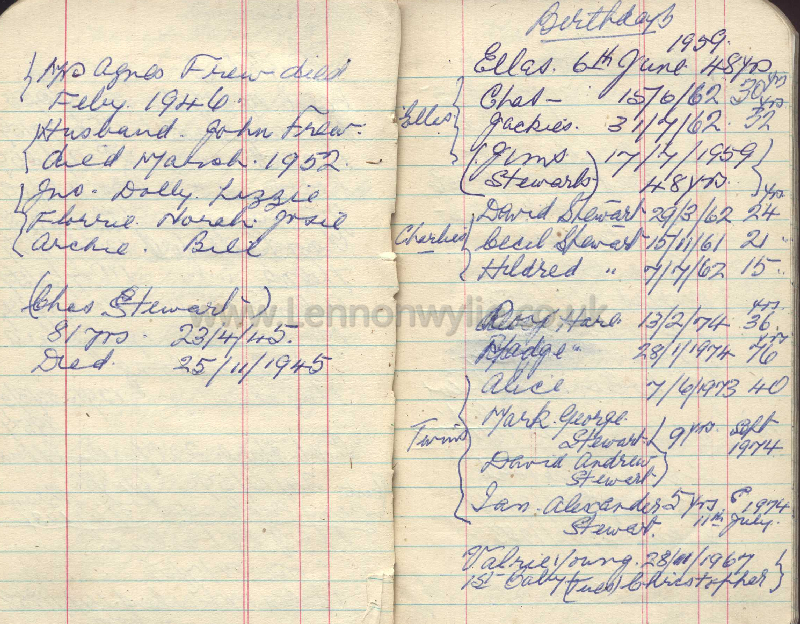 Mrs Agnes Frew died
Feby. 1946.
Husband. John Frew.
died March. 1952.
Jno. Dolly. Lizzie
Florrie. Norah. Josie
Archie. Bill
(Chas Stewart)
81 yrs. 23/4/45.
Died. 25/11/1945
www.Lennonwylie.co.uk
Birthdays
1959.
Ellas. 6th June 48 yrs
Chat - 15/6/62 30 yrs
Ellas
Jackies. 31/7/62. 32 yrs
(Jims 17/7/1959)
Stewarts) 48 yrs.
David Stewart 29/3/62 24 yrs
Charlies
Cecil Stewart 15/11/61 21 "
Hildred " 7/7/62 15 "
Roxy Hare 13/2/74 36. yrs
Madge " 28/1/1974 76 yrs
Alice 7/6/1973 40
Mark. George.
Stewart 9 yrs. Sept 1974
Twins
David Andrew
Stewart
Ian. Alexander 5 yrs 1974
Stewart. 11th July.
Valrie Young. 28/11/1967
1st Baby (Tues) Christopher